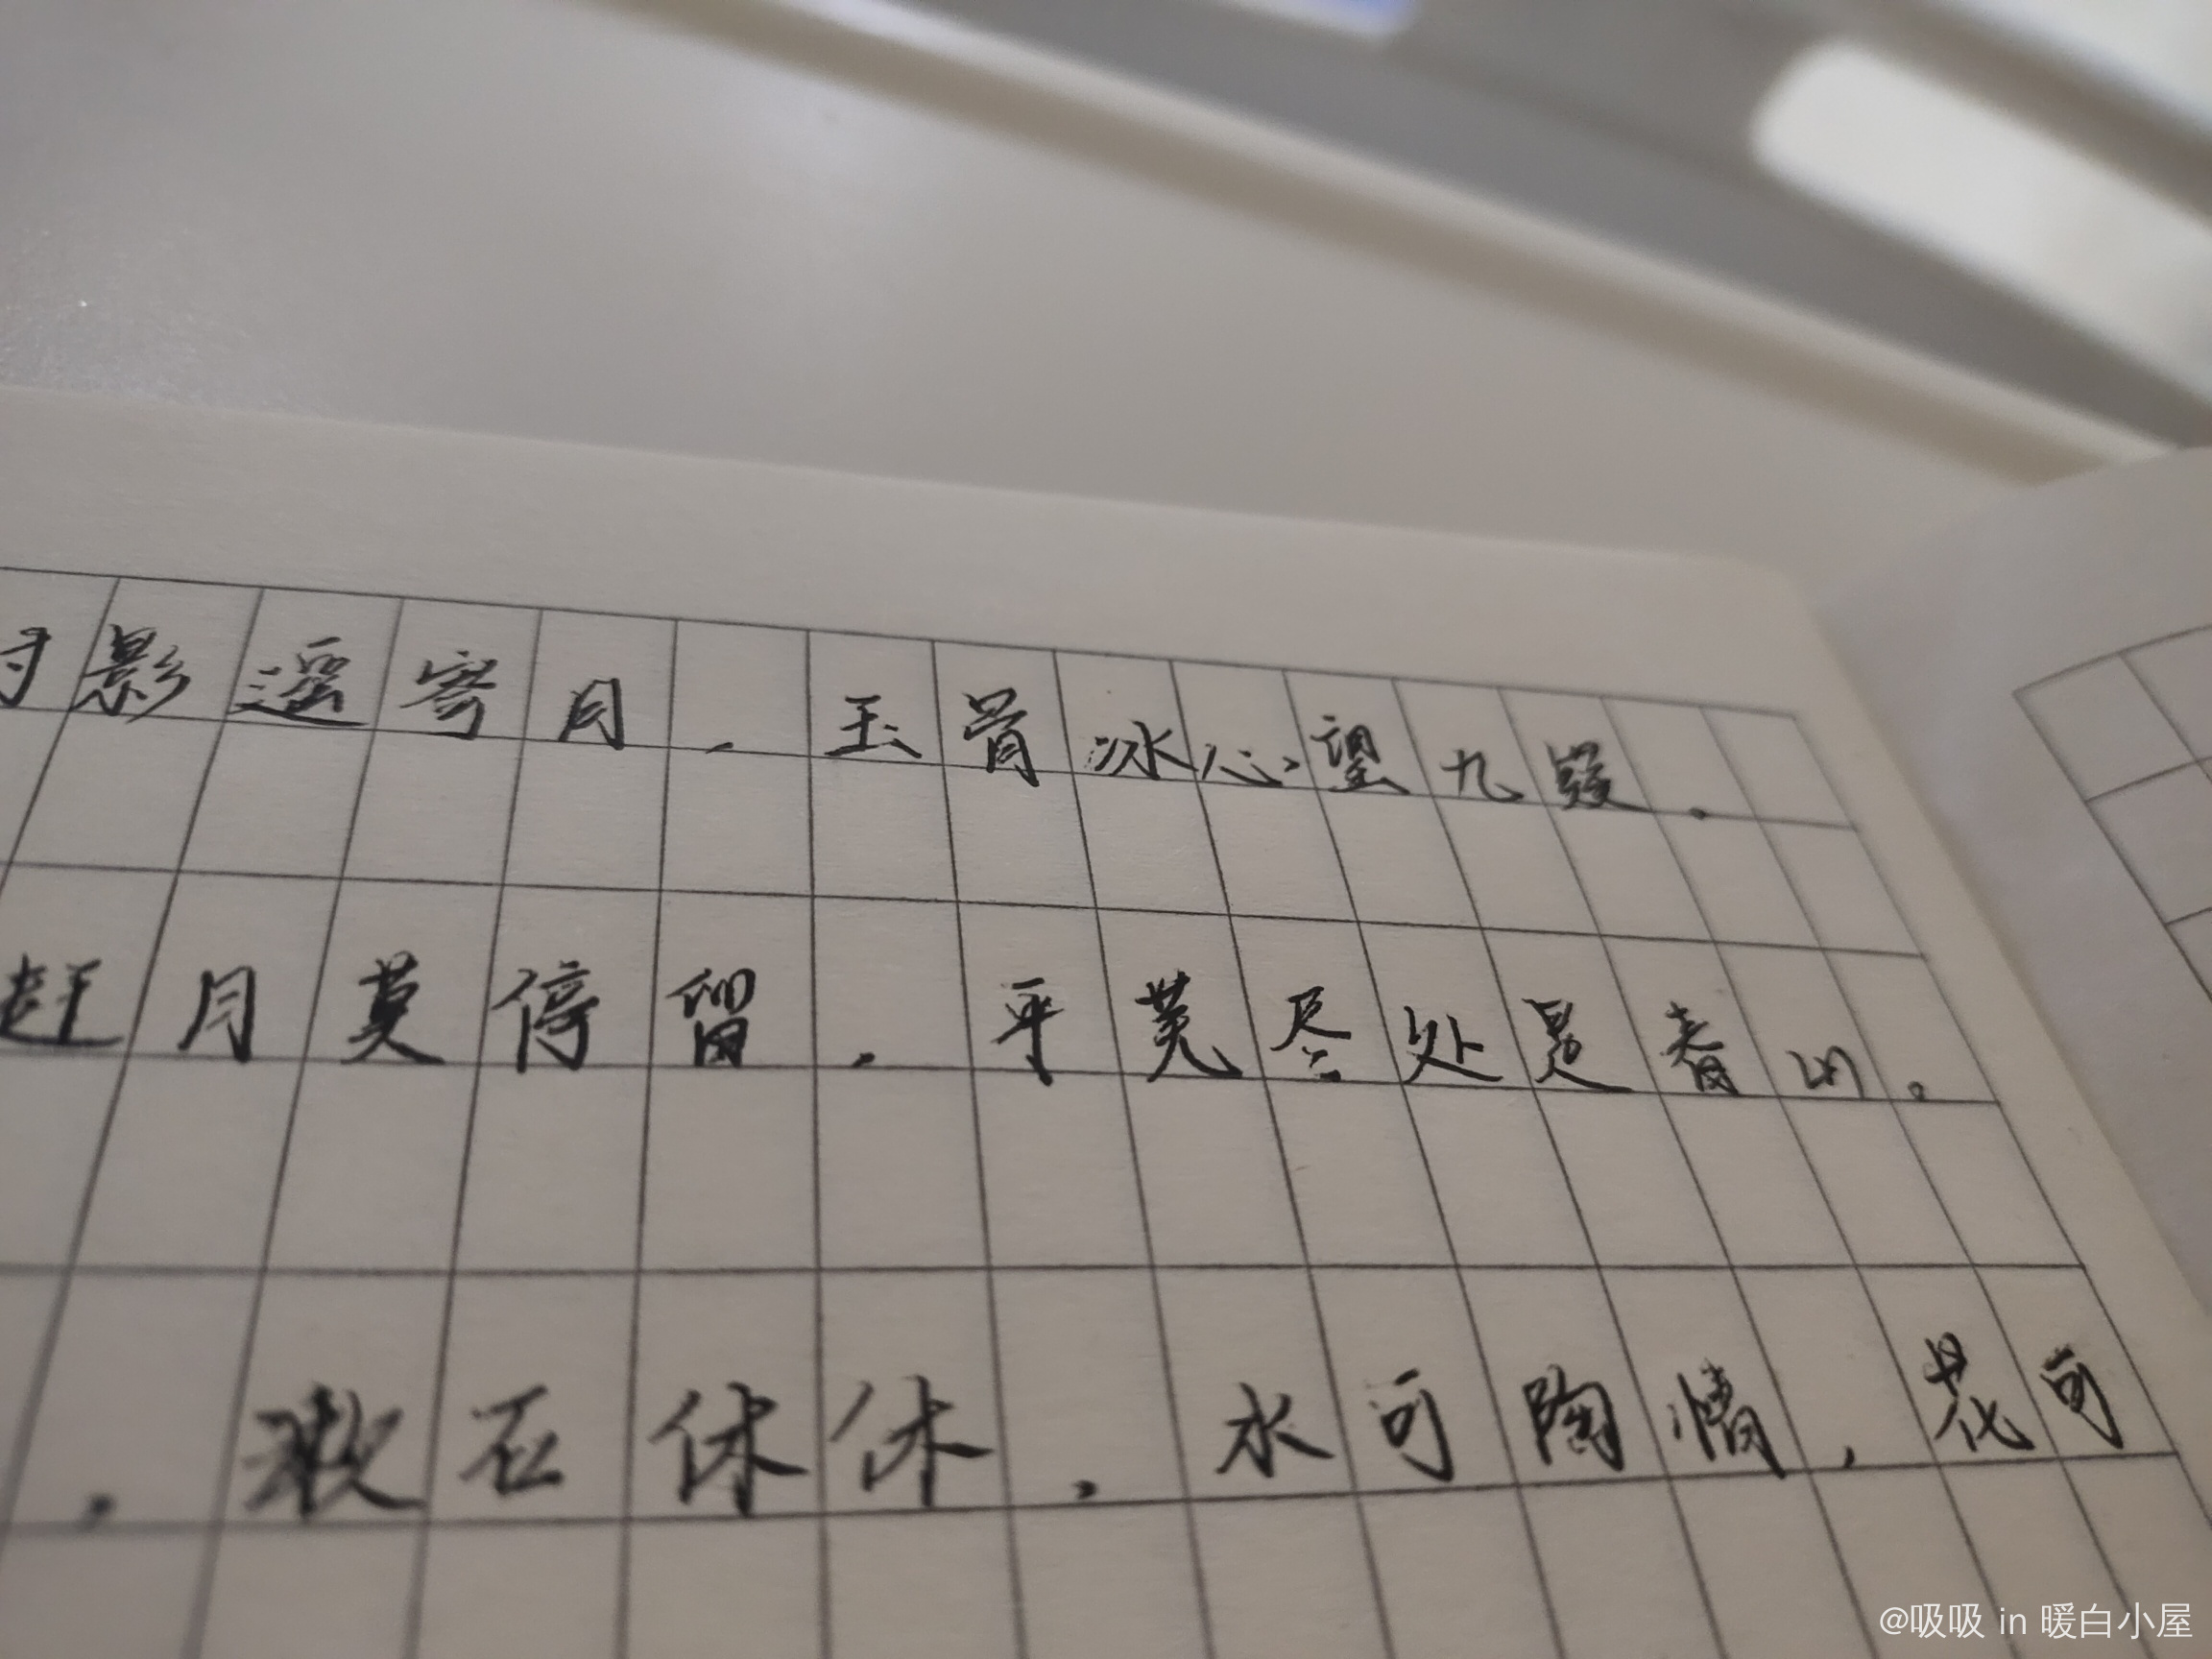 影遥寄月，玉骨冰心望九嶷。
赶月莫停留，平芜尽处是春山。
，漱石休休，水可陶情，花可
@吸吸 in 暖白小屋